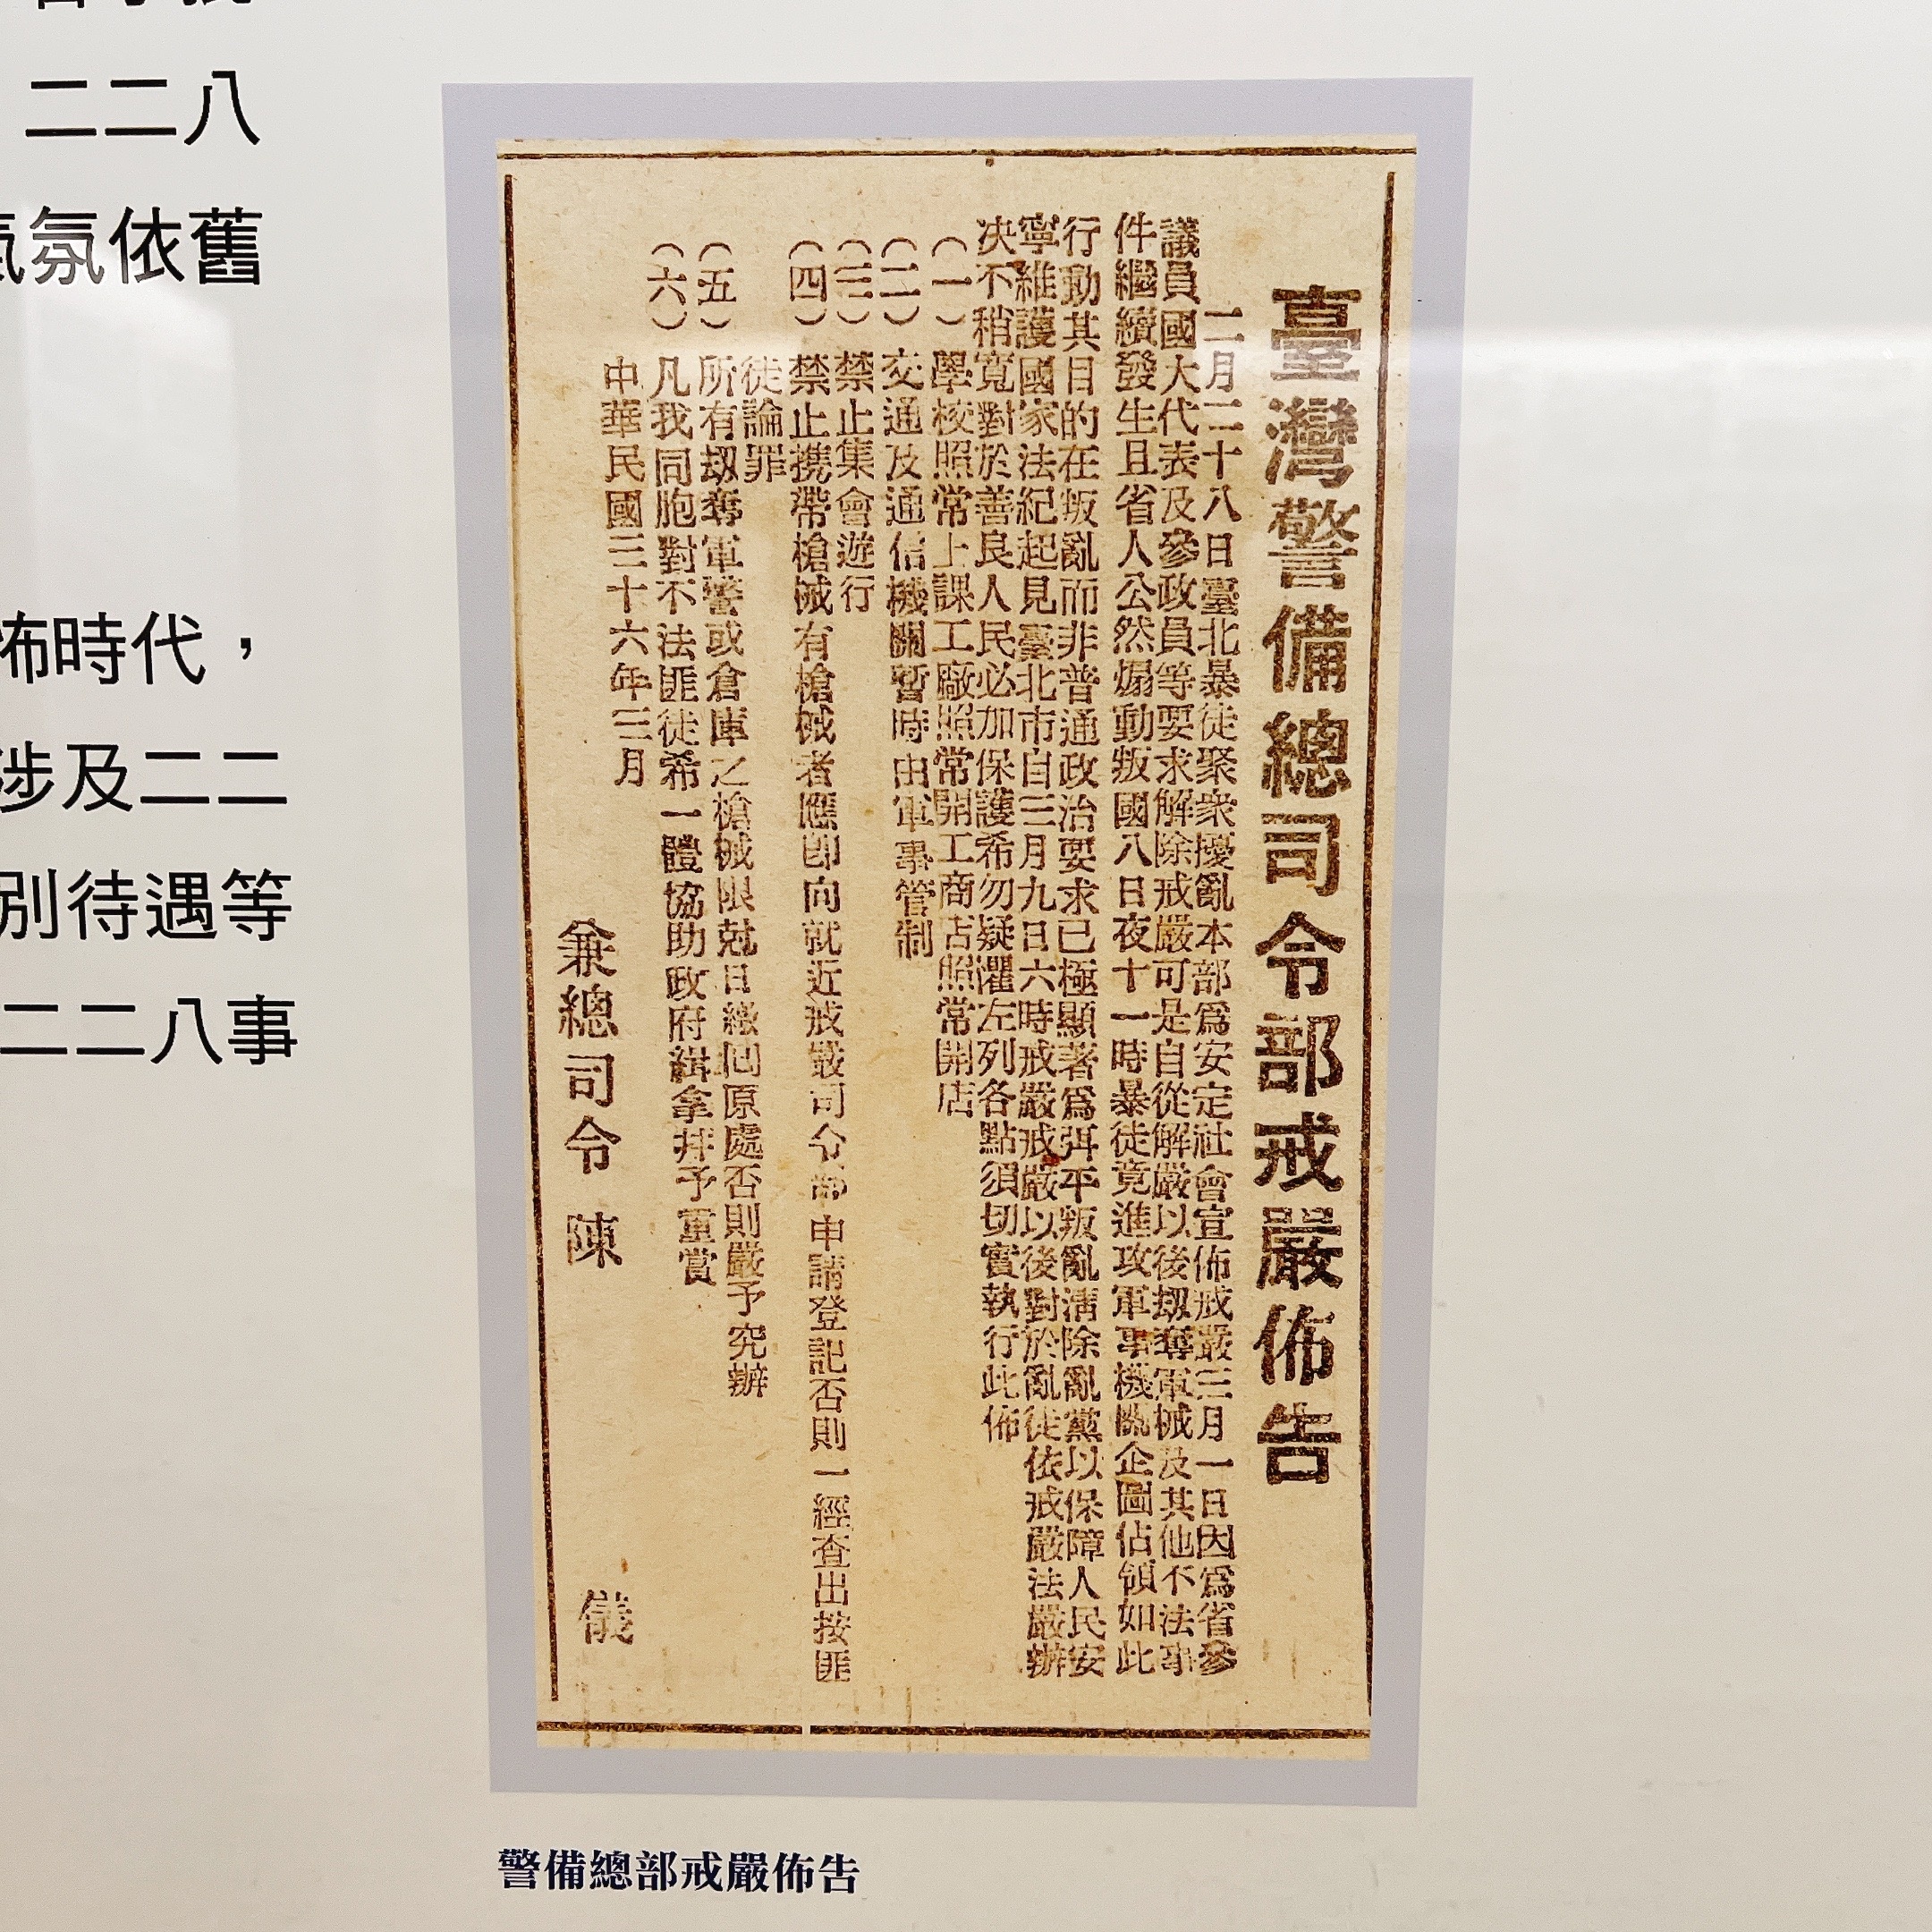 臺灣警備總司令部戒嚴佈告
二月二十八日臺北暴徒聚衆擾亂本部爲安定社會宣佈戒嚴三月一日因爲省參
議員國大代表及參政員等要求解除戒嚴可是自從解嚴以後刼奪軍械及其他不法事
件繼續發生且省人公然煽動叛國八日夜十一時暴徒竟進攻軍事機關企圖佔領如此
行動其目的在叛亂而非普通政治要求已極顯著爲弭平叛亂淸除亂黨以保障人民安
寧維護國家法紀起見臺北市自三月九日六時戒嚴戒嚴以後對於亂徒依戒嚴法嚴辦
決不稍寬對於善良人民必加保護希勿疑懼左列各點須切實執行此佈
（一）學校照常上課工廠照常開工商店照常開店
（二）交通及通信機關暫時由軍事管制
（三）禁止集會遊行
（四）禁止携帶槍械有槍械者應卽向就近戒嚴司令部申請登記否則一經查出按匪
徒論罪
（五）所有刼奪軍警或倉庫之槍械限尅日繳回原處否則嚴予究辦
（六）凡我同胞對不法匪徒希一體協助政府緝拿并予重賞
中華民國三十六年三月
兼總司令 陳 儀
警備總部戒嚴佈告
二二八
氛依舊
怖時代，
涉及二二
別待遇等
二二八事